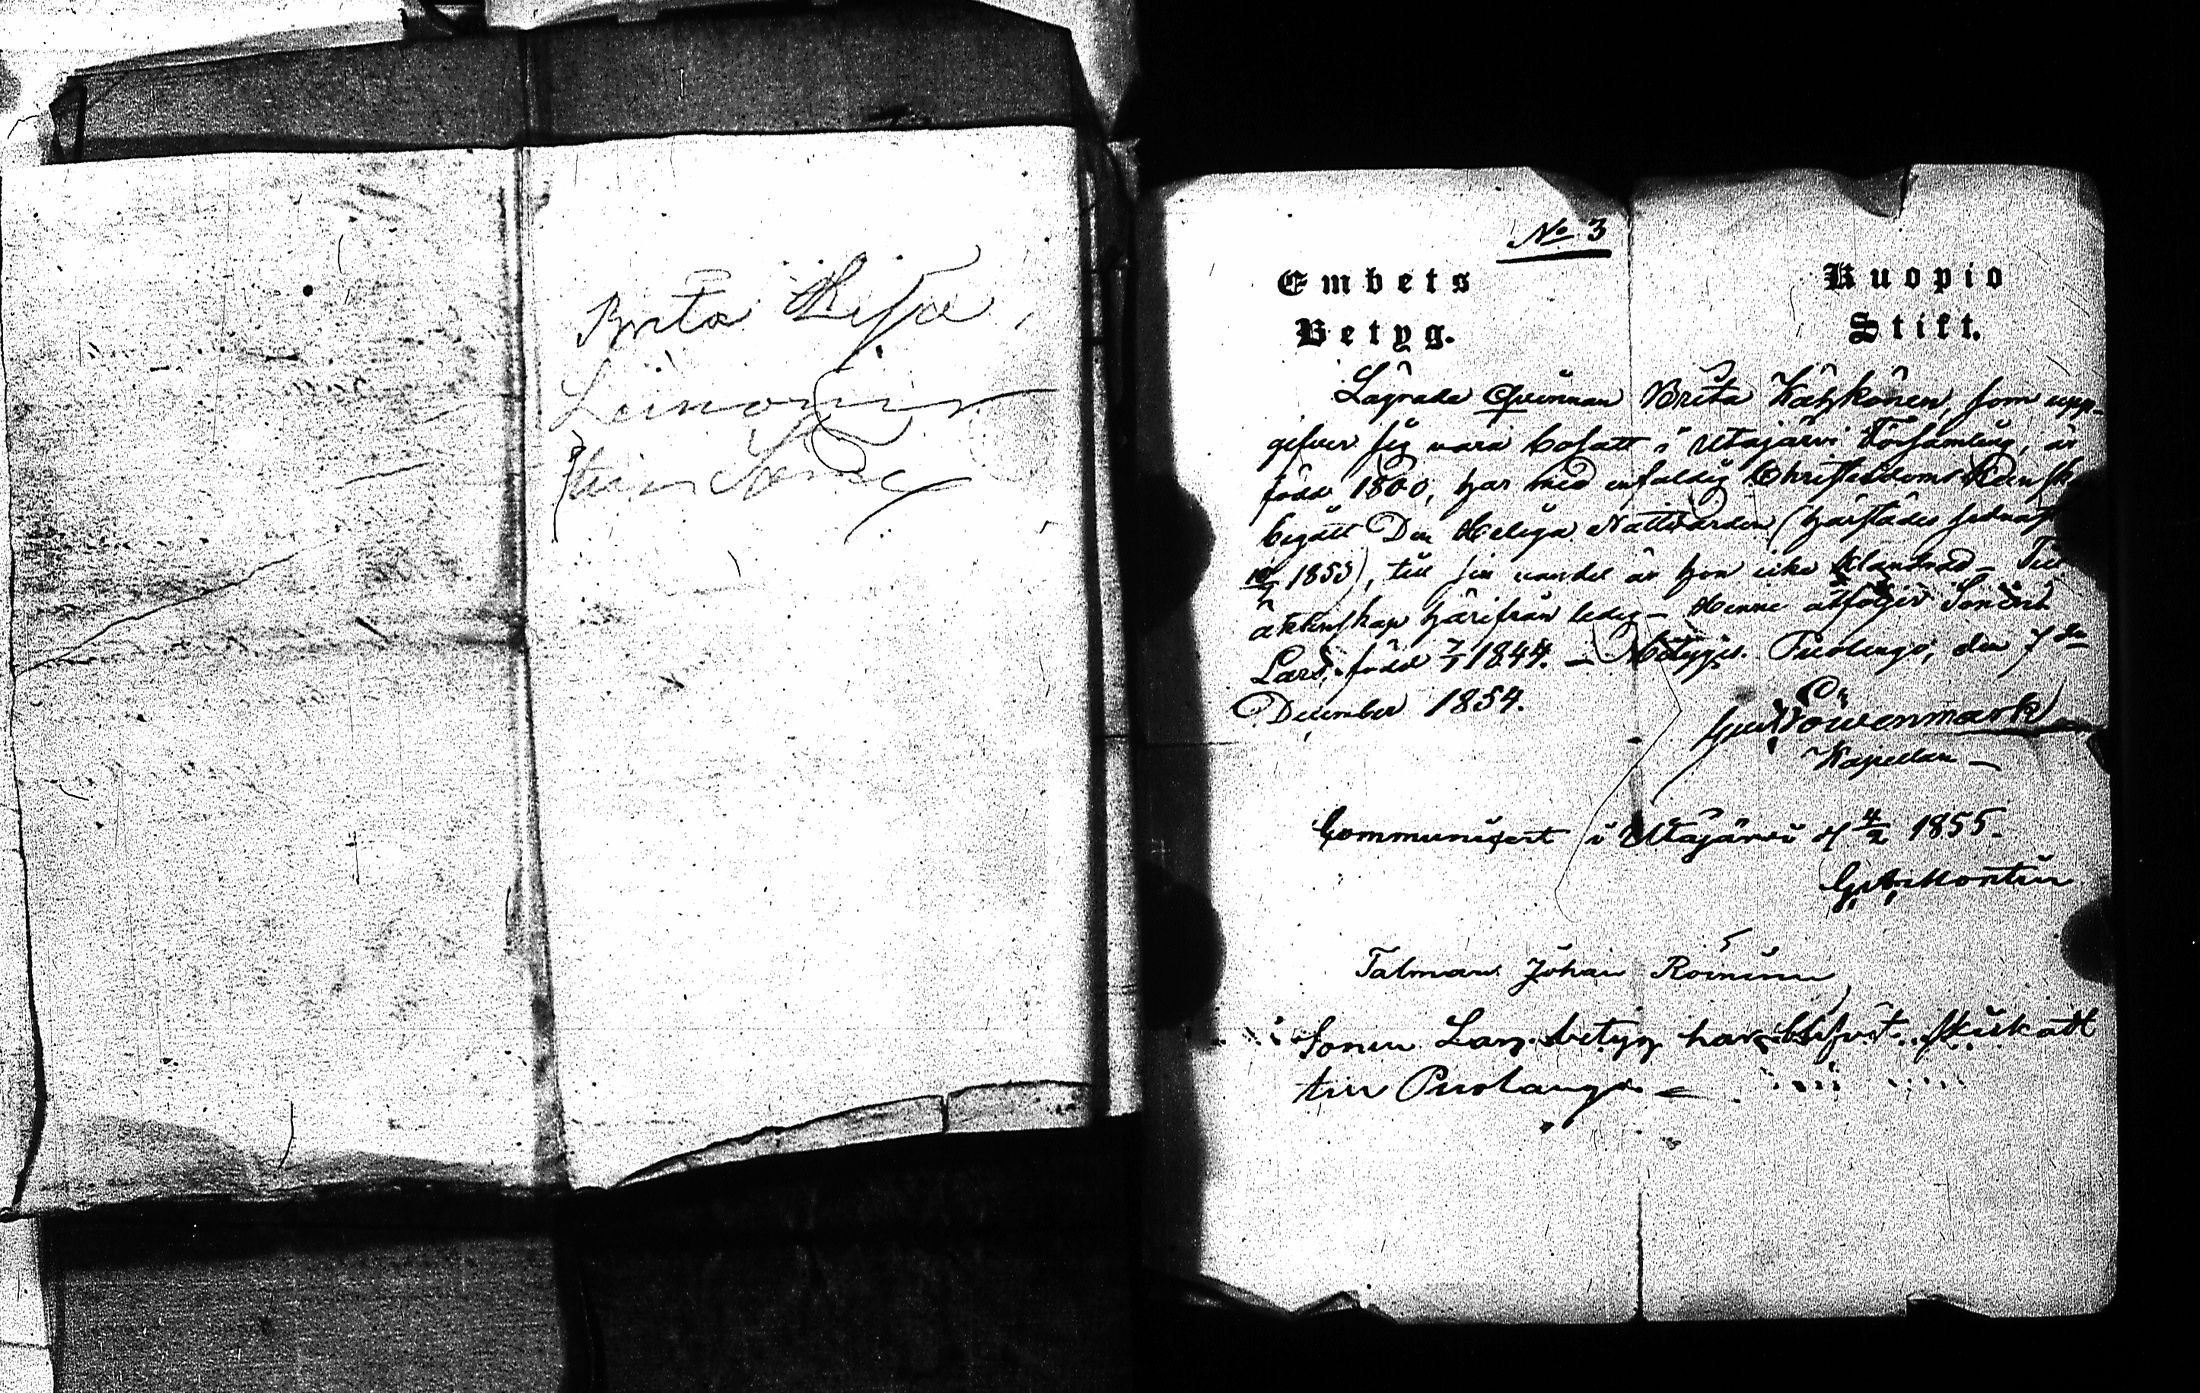 Brita Lisa
Leinonen
№ 3
Embets
Betyg.
Kuopio
Stift.
Lägrada Qvinnan Brita Kähkönen, som upp-
gifver sig vara bosatt i Utajärvi Församling, är
född 1800, har med enfaldig Christendoms Kunsk.
begått Den Heliga Nattvarden (härstädes sednast
1853), till sin vandel är hon icke klandrad - Till
äktenskap härifrån ledig - Henne åtföljer Sonen
Lars, född 7/1 1844. - Betygir. Puolango, den 7de
December 1854.
Löwenmark
Kapellan -
Communicert i Utajärvi d 4/2 1855.
Montin
Talman Johan Roininen
Sonen Lars betyg har blifvit skickatt
till Puolango -